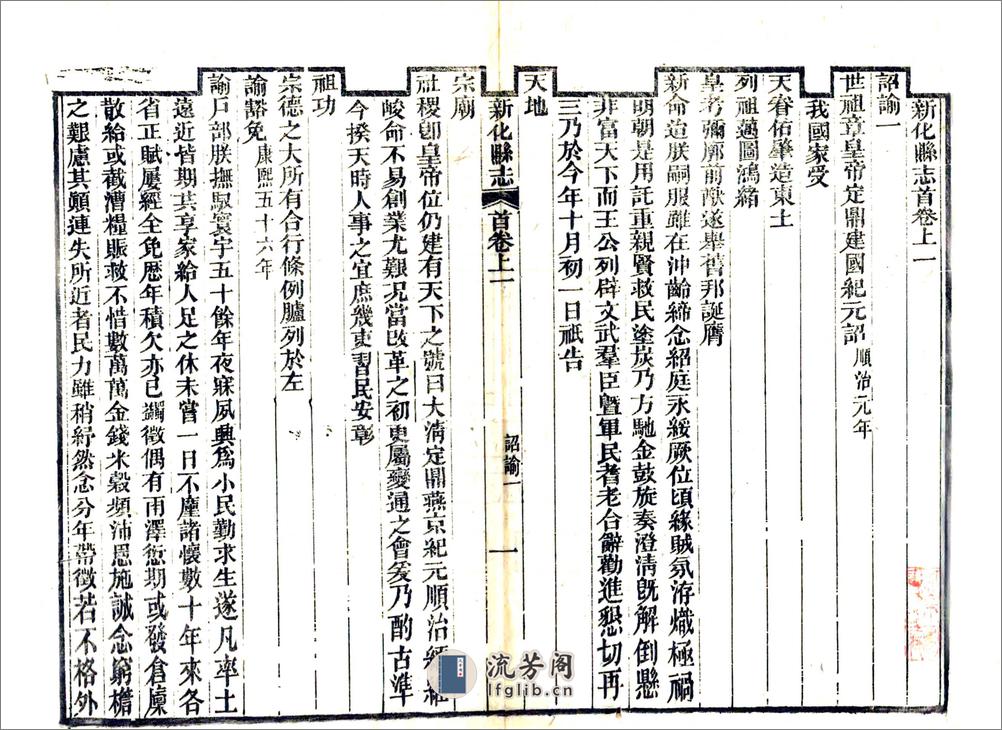 新化縣志首卷上一
詔諭一
世祖章皇帝定鼎建國紀元詔順治元年
我國家受
天眷佑肇造東土
列祖邁圖鴻緒
皇考彌廓前猷遂舉舊邦誕膺
新命迨朕嗣服雖在沖齡締念紹庭永綏厥位頃緣賊氛洊熾極禍
明朝是用託重親賢救民塗炭乃方馳金鼓旋奏澄清旣解倒懸
非富天下而王公列辟文武羣臣暨軍民耆老合辭勸進懇切再
三乃於今年十月初一日祇告
天地
新化縣志
首卷上一
詔諭一
一
宗廟
社稷卽皇帝位仍建有天下之號曰大清定鼎燕京紀元順治經維
峻命不易創業尤艱況當改革之初更屬變通之會爰乃酌古準
今揆天時人事之宜庶幾吏習民安彰
祖功
宗德之大所有合行條例臚列於左
諭豁免康熙五十六年
諭戸部朕撫馭寰宇五十餘年夜寐夙興爲小民勤求生遂凡率土
遠近皆期其享家給人足之休未嘗一日不廑諸懷數十年來各
省正賦屢經全免歷年積欠亦已蠲徵偶有雨澤愆期或發倉廩
散給或截漕糧賑救不惜數萬萬金錢米穀頻沛恩施誠念窮檐
之艱慮其顛連失所近者民力雖稍紓然念分年帶徵若不格外
流芳阁
lfglib.cn